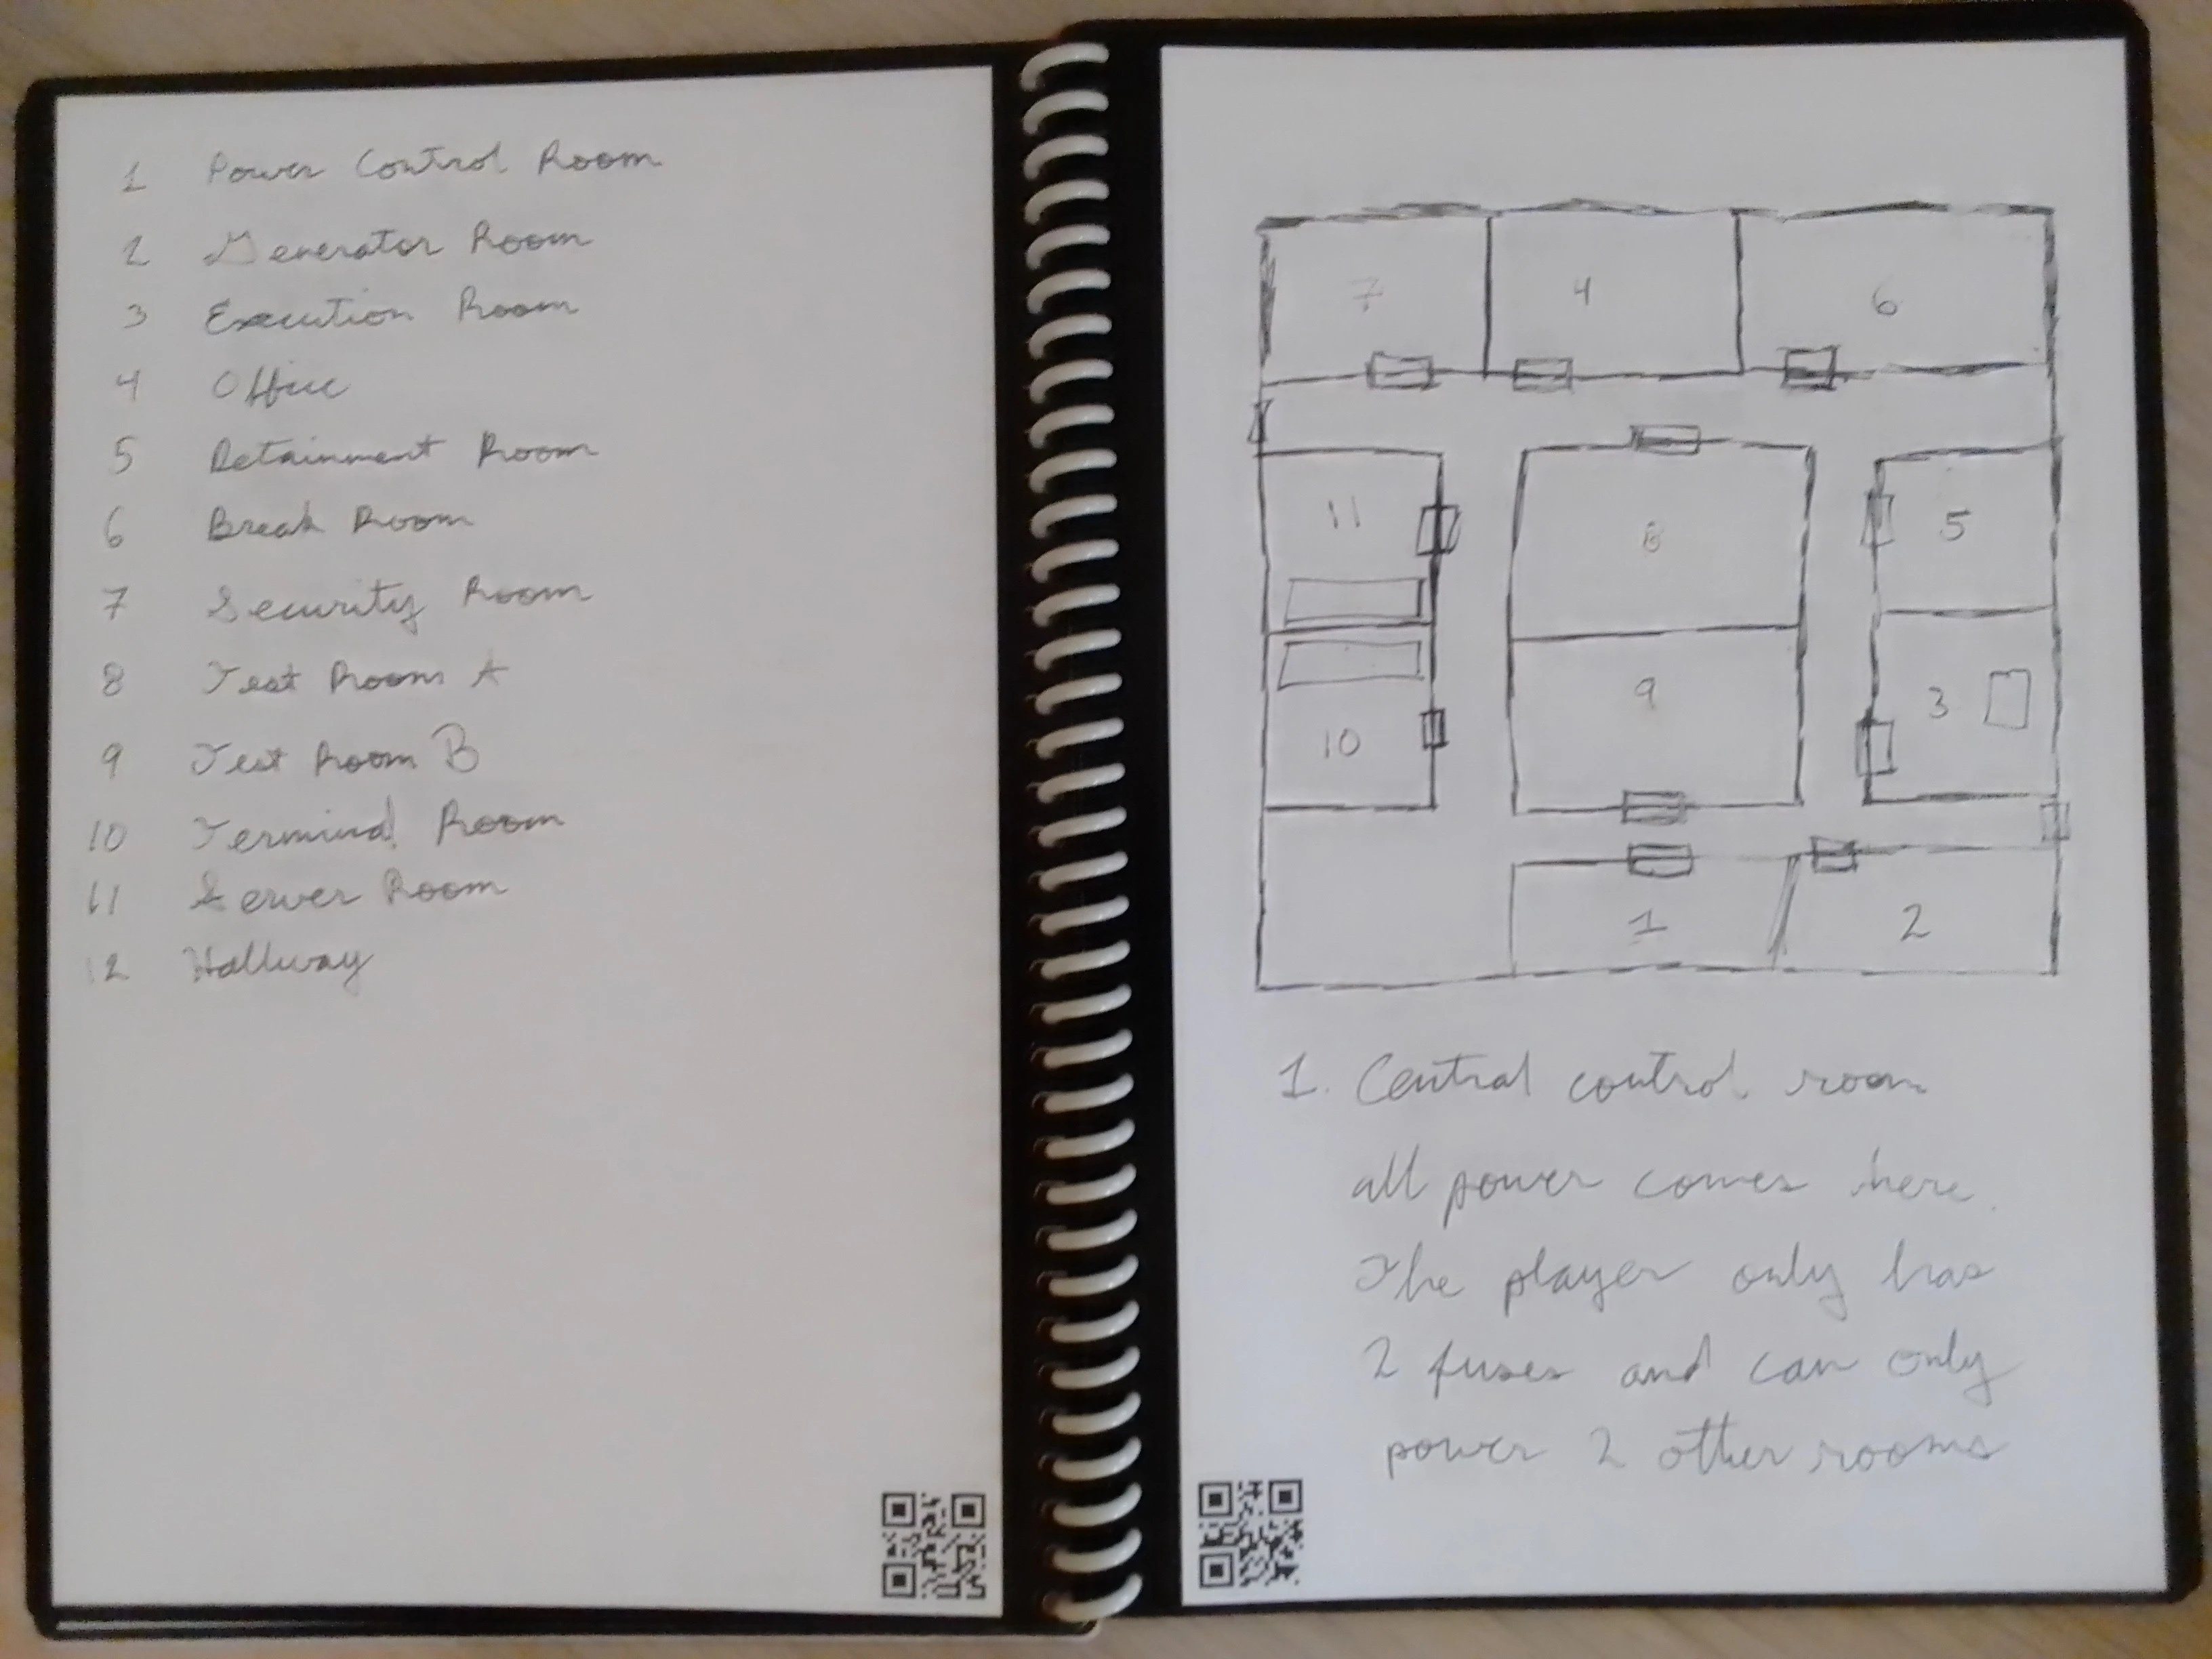 1 Power Control Room
2 Generator Room
3 Execution Room
4 Office
5 Retainment Room
6 Break Room
7 Security Room
8 Test Room A
9 Test Room B
10 Terminal Room
11 Server Room
12 Hallway
7 4 6
11 8 5
9 3
10
1 2
1. Central control room
all power comes here.
The player only has
2 fuses and can only
power 2 other rooms